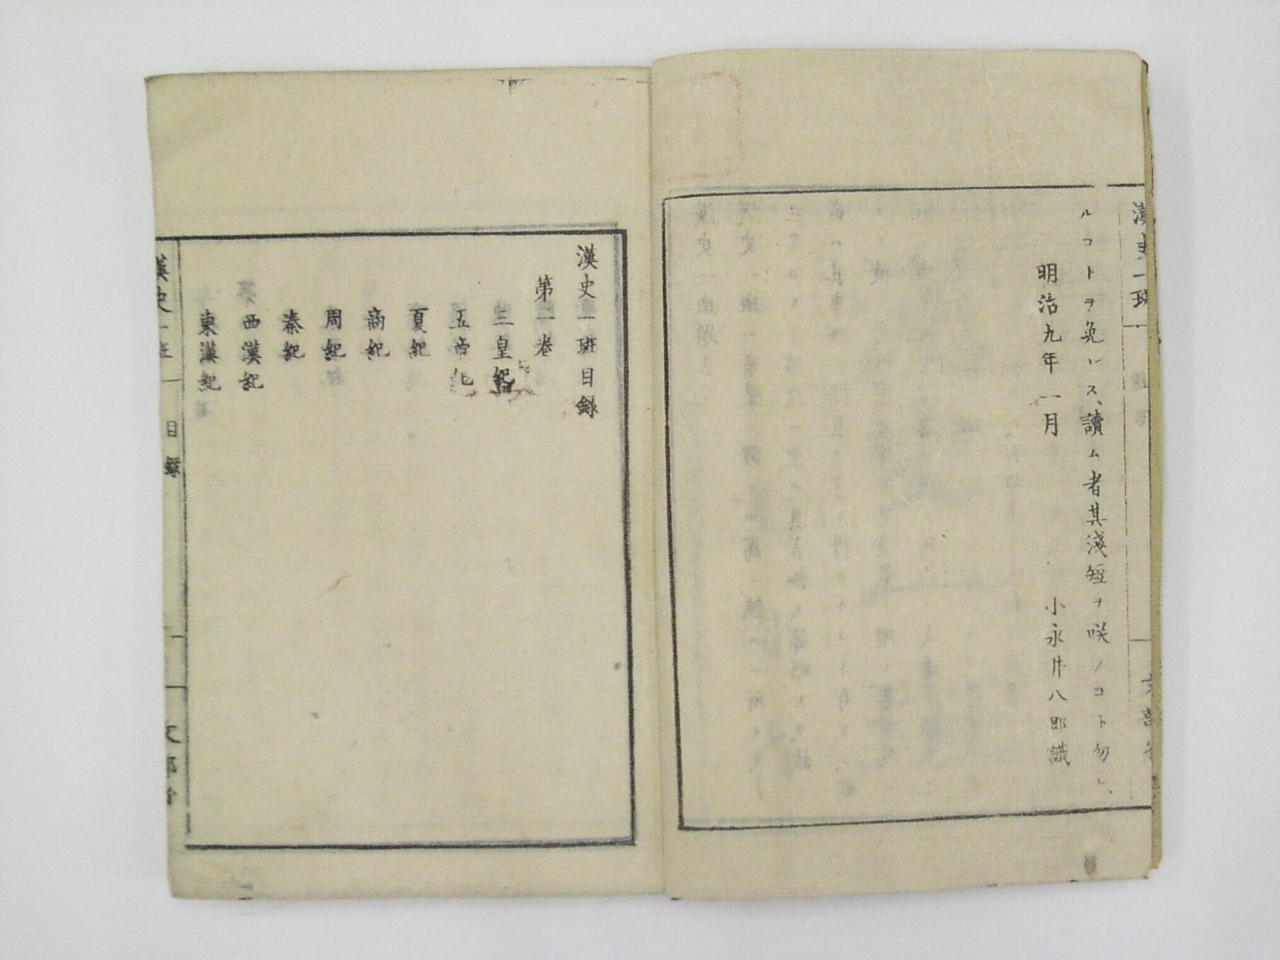 漢史一班
文部省
ルコトヲ免レス、讀ム者其淺短ヲ咲フコト勿レ、
明治九年一月
小永井八郎識
漢史一班目録
第一卷
三皇紀
五帝紀
夏紀
商紀
周紀
秦紀
西漢紀
東漢紀
漢史一班
目録
一
文部省